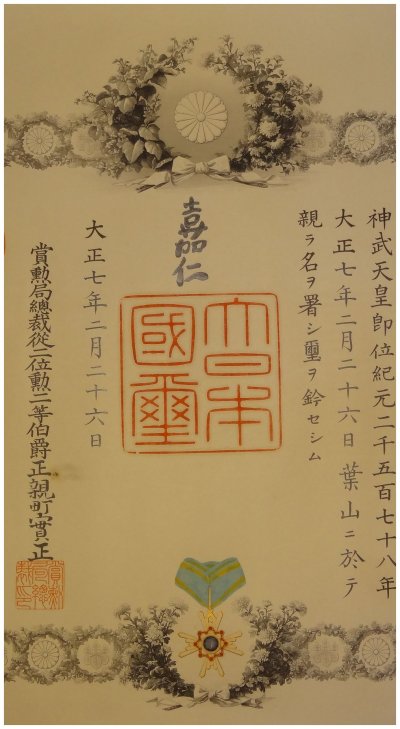 神武天皇即位紀元二千五百七十八年
大正七年二月二十六日葉山ニ於テ
親ラ名ヲ署シ璽ヲ鈐セシム
嘉仁
大日本
國璽
大正七年二月二十六日
賞勲局總裁從二位勲二等伯爵正親町實正